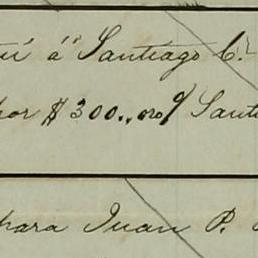 á "Santiago C.
por $300.,, oro q/ Santi
para Juan P.